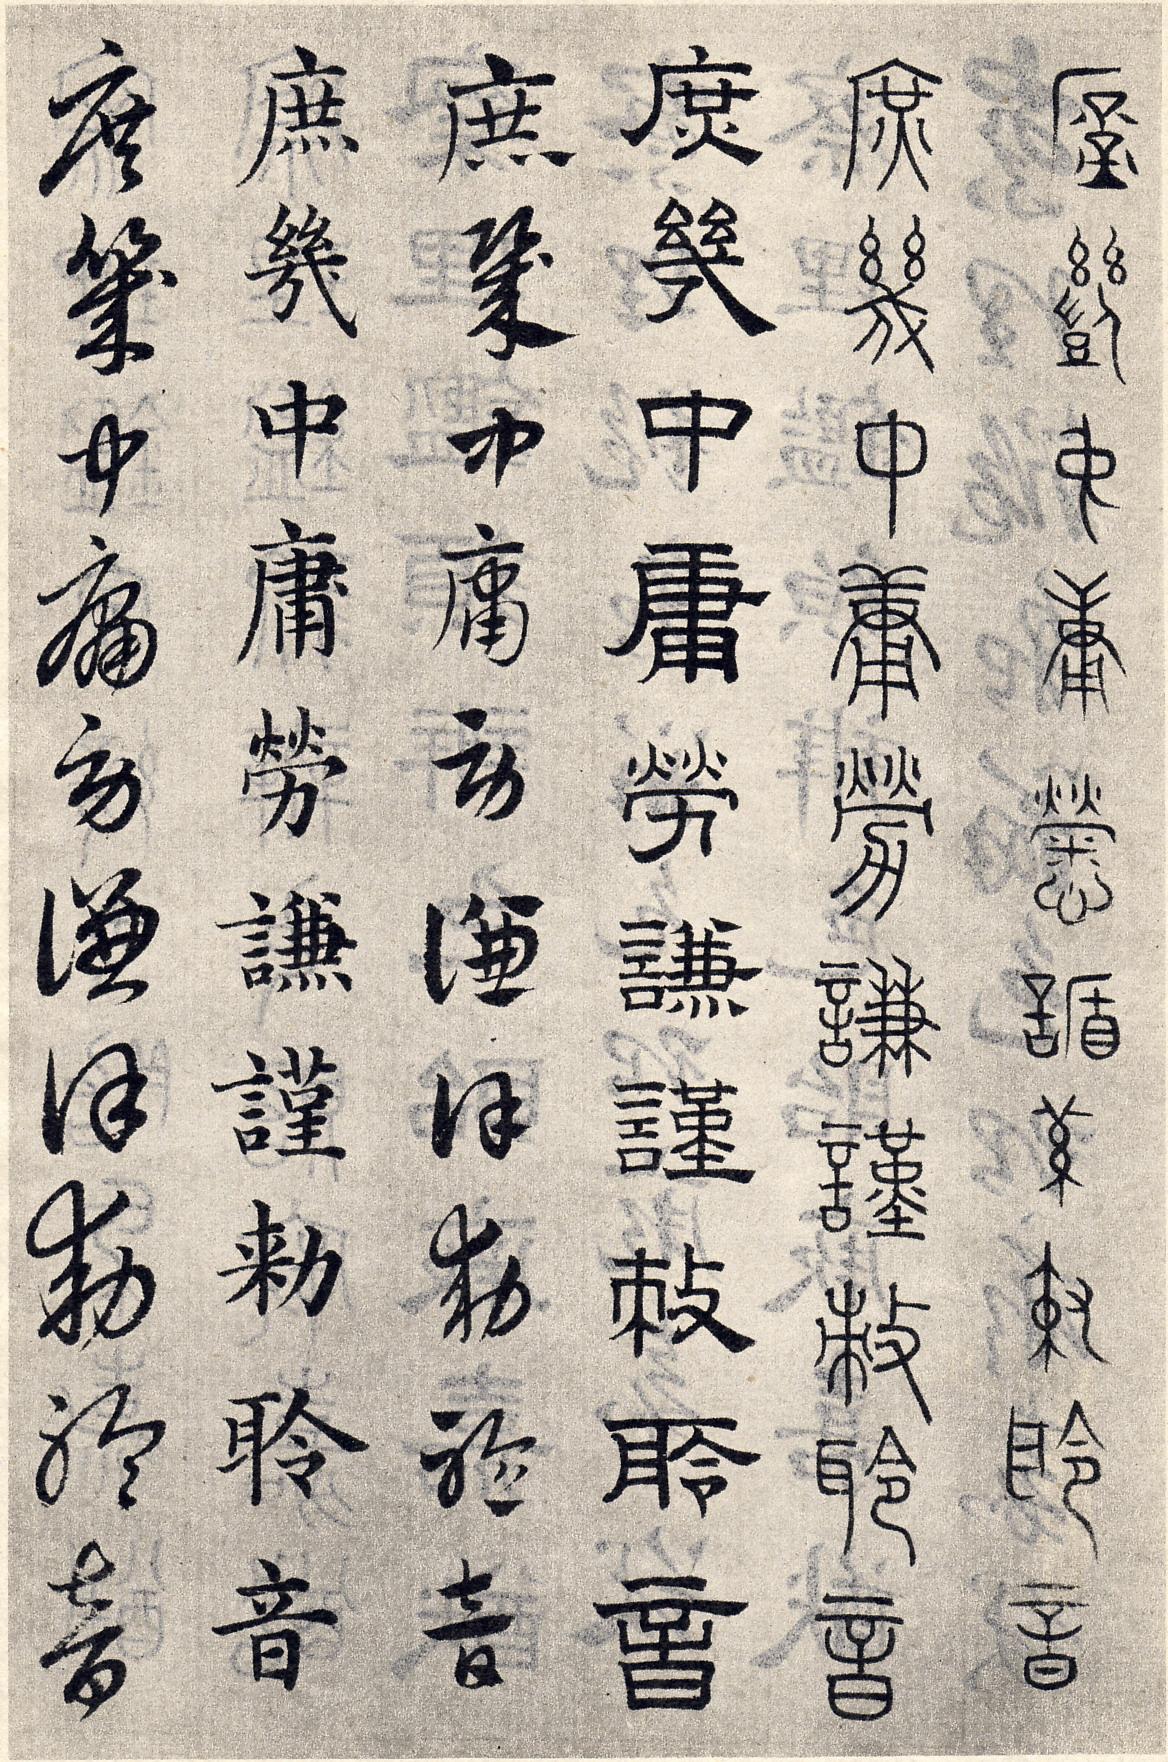 庶幾中庸勞謙謹敕聆音
庶幾中庸勞謙謹敕聆音
庶幾中庸勞謙謹敕聆音
庶幾中庸勞謙謹敕聆音
庶幾中庸勞謙謹勑聆音
庶幾中庸勞謙謹勑聆音